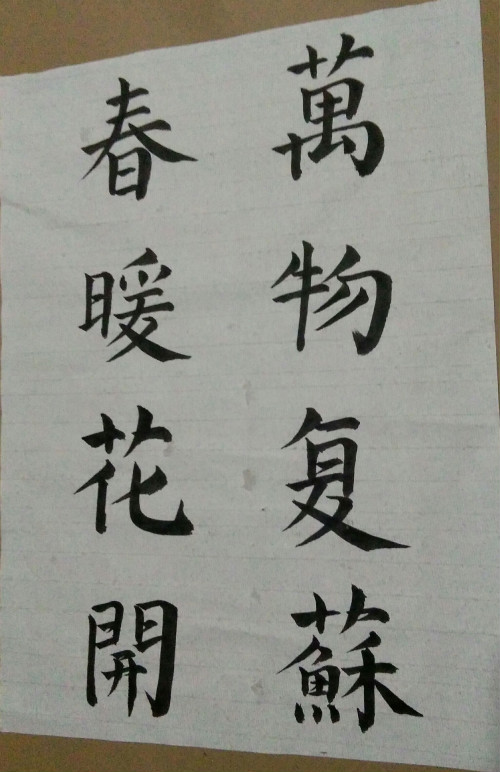 萬物复蘇
春暖花開